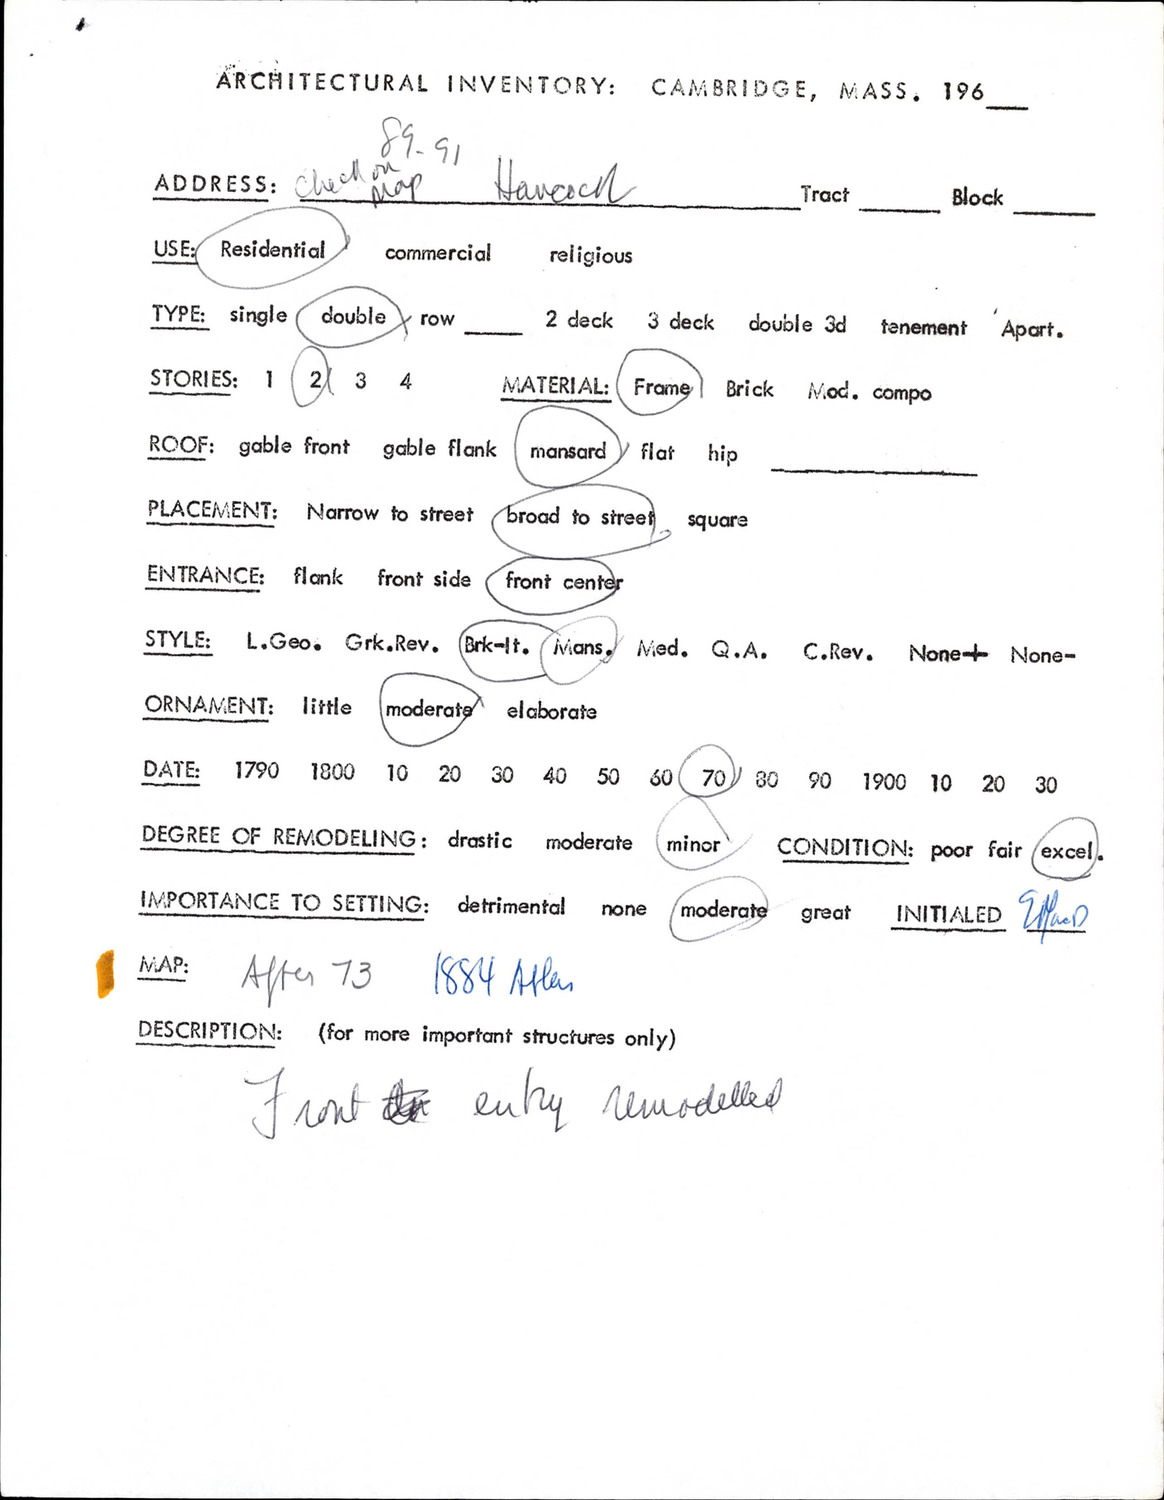 ARCHITECTURAL INVENTORY: CAMBRIDGE, MASS. 196__
89-91
ADDRESS: Check on Map Hancock Tract ____ Block ____
USE: Residential commercial religious
TYPE: single double row ____ 2 deck 3 deck double 3d tenement Apart.
STORIES: 1 2 3 4 MATERIAL: Frame Brick Mod. compo
ROOF: gable front gable flank mansard flat hip ____
PLACEMENT: Narrow to street broad to street square
ENTRANCE: flank front side front center
STYLE: L.Geo. Grk.Rev. Brk-It. Mans. Med. Q.A. C.Rev. None+ None-
ORNAMENT: little moderate elaborate
DATE: 1790 1800 10 20 30 40 50 60 70 80 90 1900 10 20 30
DEGREE OF REMODELING: drastic moderate minor CONDITION: poor fair excel.
IMPORTANCE TO SETTING: detrimental none moderate great INITIALED
MAP: After 73 1884 Atlas
DESCRIPTION: (for more important structures only)
Front entry remodelled